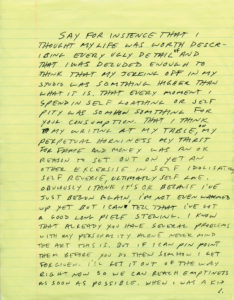 SAY FOR INSTENCE THAT I
THOUGHT MY LIFE WAS WORTH DESCR-
IBING EVERY UGLY DETAIL AND
THAT I WAS DELUDED ENOUGH TO
THINK THAT MY JERKING OFF IN MY
STUDIO WAS SOMTHING HIGHER THAN
WHAT IT IS. THAT EVERY MOMENT I
SPEND IN SELF LOATHING OR SELF
PITY WAS SOMHOW SOMTHING FOR
YOUR CONSUMPTION. THAT I THINK
MY WRITING AT MY TABLE, MY
PERPETUAL HORNINESS MY THIRST
FOR FAME AND MONEY WAS
REASON TO SET OUT ON YET AN
OTHER EXCERSISE IN SELF
SELF REVERIE, ULTIMATLY SELF
OBVIOUSLY I THINK IT'S OK BECAUSE I'VE
JUST BEGUN AGAIN, I'M NOT EVEN WARMED
UP YET BUT I CAN TELL THAT I'VE GOT
A GOOD LONG PIECE STEWING. I KNOW
THAT ALREADY YOU HAVE SEVERAL PROBLEMS
WITH MY PERSONALITY ALONE NEVER MIND
THE ART THIS IS. BUT IF I CAN PIN POINT
THEM BEFORE YOU DO THEN SOMHOW I GET
FORGIVEN. I'LL GET IT OUT OF THE WAY
RIGHT NOW SO WE CAN REACH EMPTINESS
AS SOON AS POSSIBLE. WHEN I WAS A KID
1.